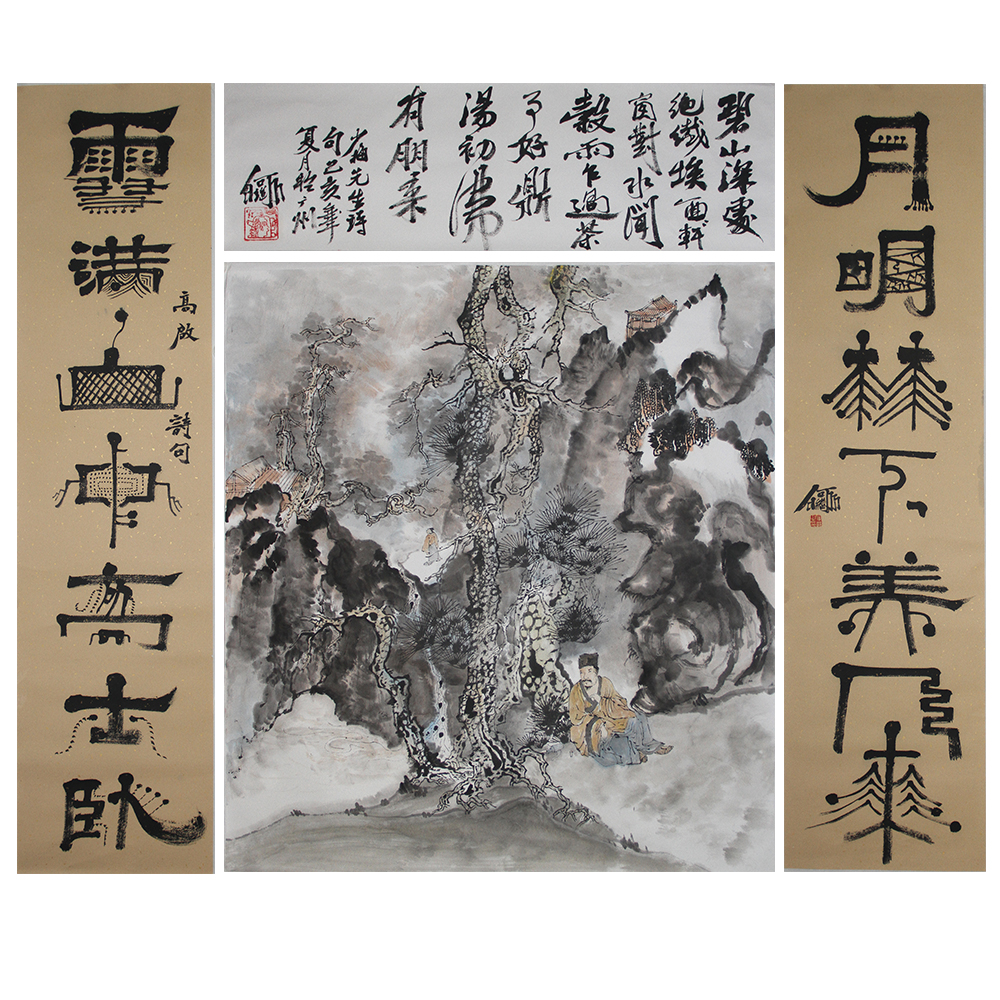 碧山深處
絕纖埃面〻軒
窗對水開
穀雨乍過茶
事好鼎
湯初沸
有朋來
先生詩
句己亥年
夏月於廣州
月明林下美人來
雪滿山中高士臥
高啟
詩句